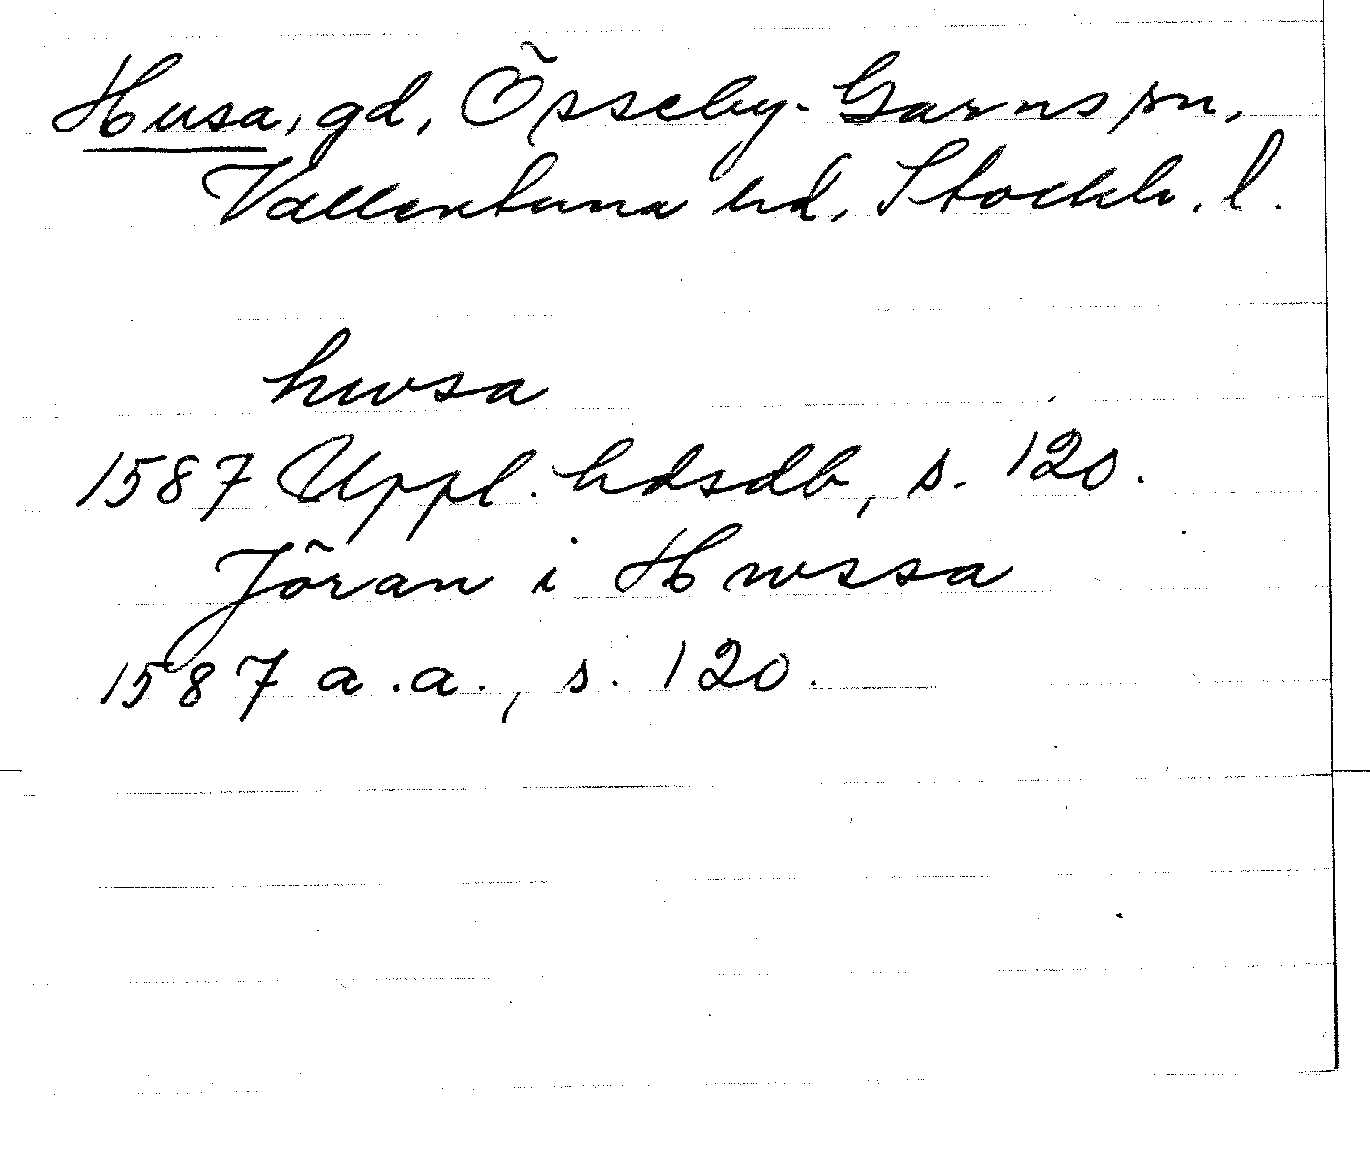 Husa, gd, Össeby-Garns sn,
Vallentuna hd, Stockh. l.
hwsa
1587 Uppl. hdsdb, s. 120.
Jöran i Hwssa
1587 a.a., s. 120.